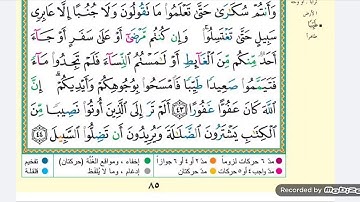 وَأَنتُمْ سُكَـٰرَىٰ حَتَّىٰ تَعْلَمُوا۟ مَا تَقُولُونَ وَلَا جُنُبًا إِلَّا عَابِرِى
سَبِيلٍ حَتَّىٰ تَغْتَسِلُوا۟ ۚ وَإِن كُنتُم مَّرْضَىٰٓ أَوْ عَلَىٰ سَفَرٍ أَوْ جَآءَ
أَحَدٌ مِّنكُم مِّنَ ٱلْغَآئِطِ أَوْ لَـٰمَسْتُمُ ٱلنِّسَآءَ فَلَمْ تَجِدُوا۟ مَآءً
فَتَيَمَّمُوا۟ صَعِيدًا طَيِّبًا فَٱمْسَحُوا۟ بِوُجُوهِكُمْ وَأَيْدِيكُمْ ۗ إِنَّ
ٱللَّهَ كَانَ عَفُوًّا غَفُورًا ٤٣ أَلَمْ تَرَ إِلَى ٱلَّذِينَ أُوتُوا۟ نَصِيبًا مِّنَ
ٱلْكِتَـٰبِ يَشْتَرُونَ ٱلضَّلَـٰلَةَ وَيُرِيدُونَ أَن تَضِلُّوا۟ ٱلسَّبِيلَ ٤٤
الأرض
طَيِّبًا
طاهراً
مدّ ٦ حركات لزوماً مدّ ٢ أو ٤ أو ٦ جوازاً إخفاء، ومواقع الغُنَّة (حركتان) تفخيم
مدّ واجب ٤ أو ٥ حركات مدّ حركتان إدغام، وما لا يُلفَظ قلقلة
٨٥
Recorded by